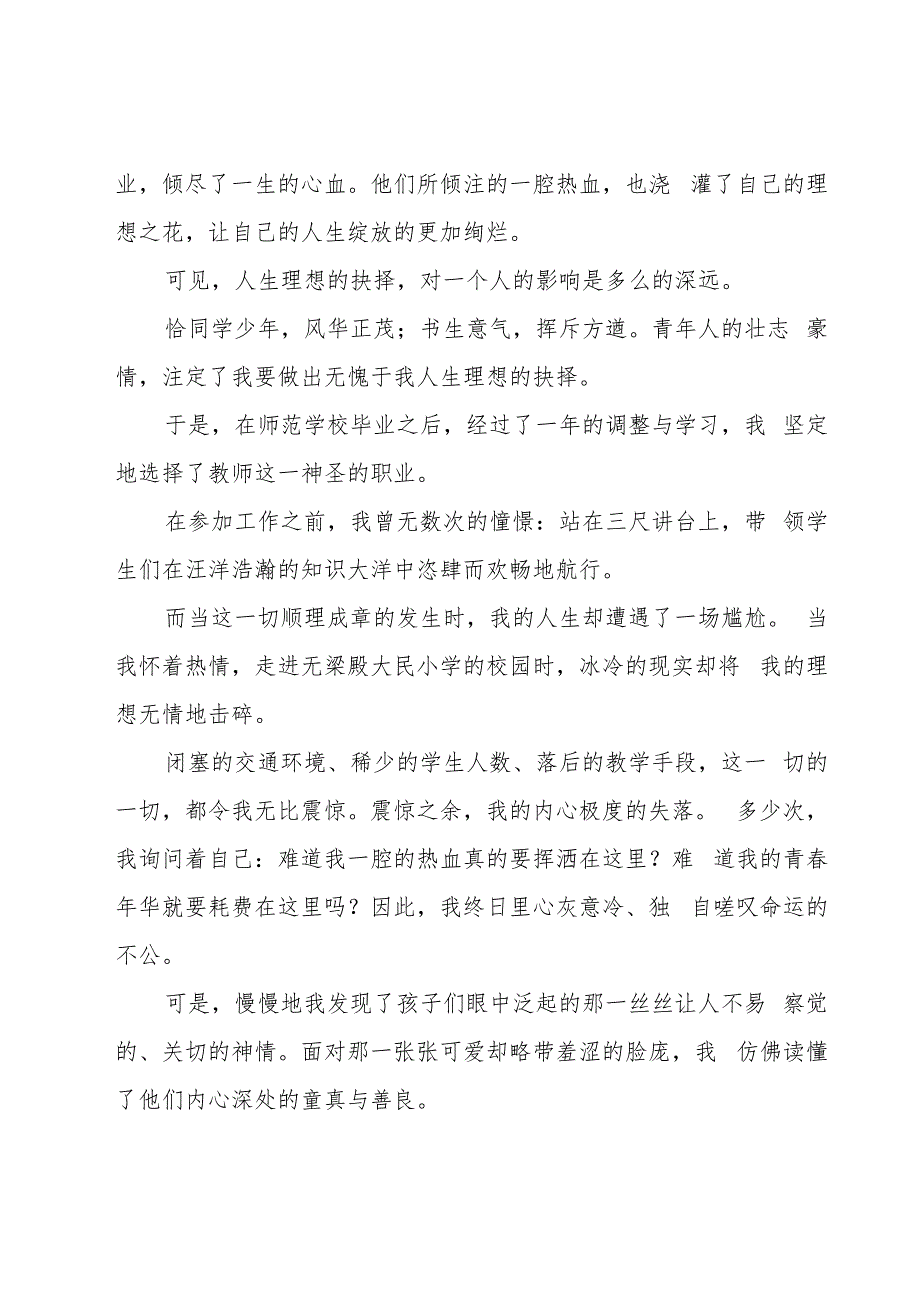 业，倾尽了一生的心血。他们所倾注的一腔热血，也浇 灌了自己的理
想之花，让自己的人生绽放的更加绚烂。
可见，人生理想的抉择，对一个人的影响是多么的深远。
恰同学少年，风华正茂；书生意气，挥斥方遒。青年人的壮志 豪
情，注定了我要做出无愧于我人生理想的抉择。
于是，在师范学校毕业之后，经过了一年的调整与学习，我 坚定
地选择了教师这一神圣的职业。
在参加工作之前，我曾无数次的憧憬：站在三尺讲台上，带 领学
生们在汪洋浩瀚的知识大洋中恣肆而欢畅地航行。
而当这一切顺理成章的发生时，我的人生却遭遇了一场尴尬。 当
我怀着热情，走进无梁殿大民小学的校园时，冰冷的现实却将 我的理
想无情地击碎。
闭塞的交通环境、稀少的学生人数、落后的教学手段，这一 切的
一切，都令我无比震惊。震惊之余，我的内心极度的失落。 多少次，
我询问着自己：难道我一腔的热血真的要挥洒在这里？难 道我的青春
年华就要耗费在这里吗？因此，我终日里心灰意冷、独 自嗟叹命运的
不公。
可是，慢慢地我发现了孩子们眼中泛起的那一丝丝让人不易 察觉
的、关切的神情。面对那一张张可爱却略带羞涩的脸庞，我 仿佛读懂
了他们内心深处的童真与善良。